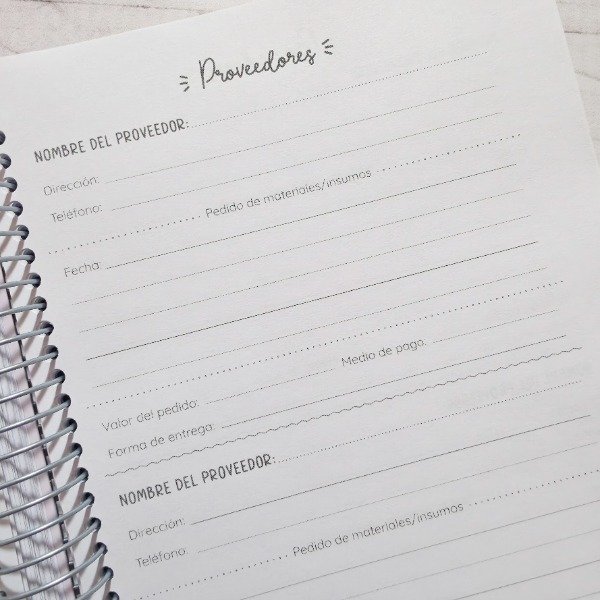 Proveedores
NOMBRE DEL PROVEEDOR:
Dirección:
Teléfono:
Pedido de materiales/insumos
Fecha:
Valor del pedido: Medio de pago:
Forma de entrega:
NOMBRE DEL PROVEEDOR:
Dirección:
Teléfono:
Pedido de materiales/insumos